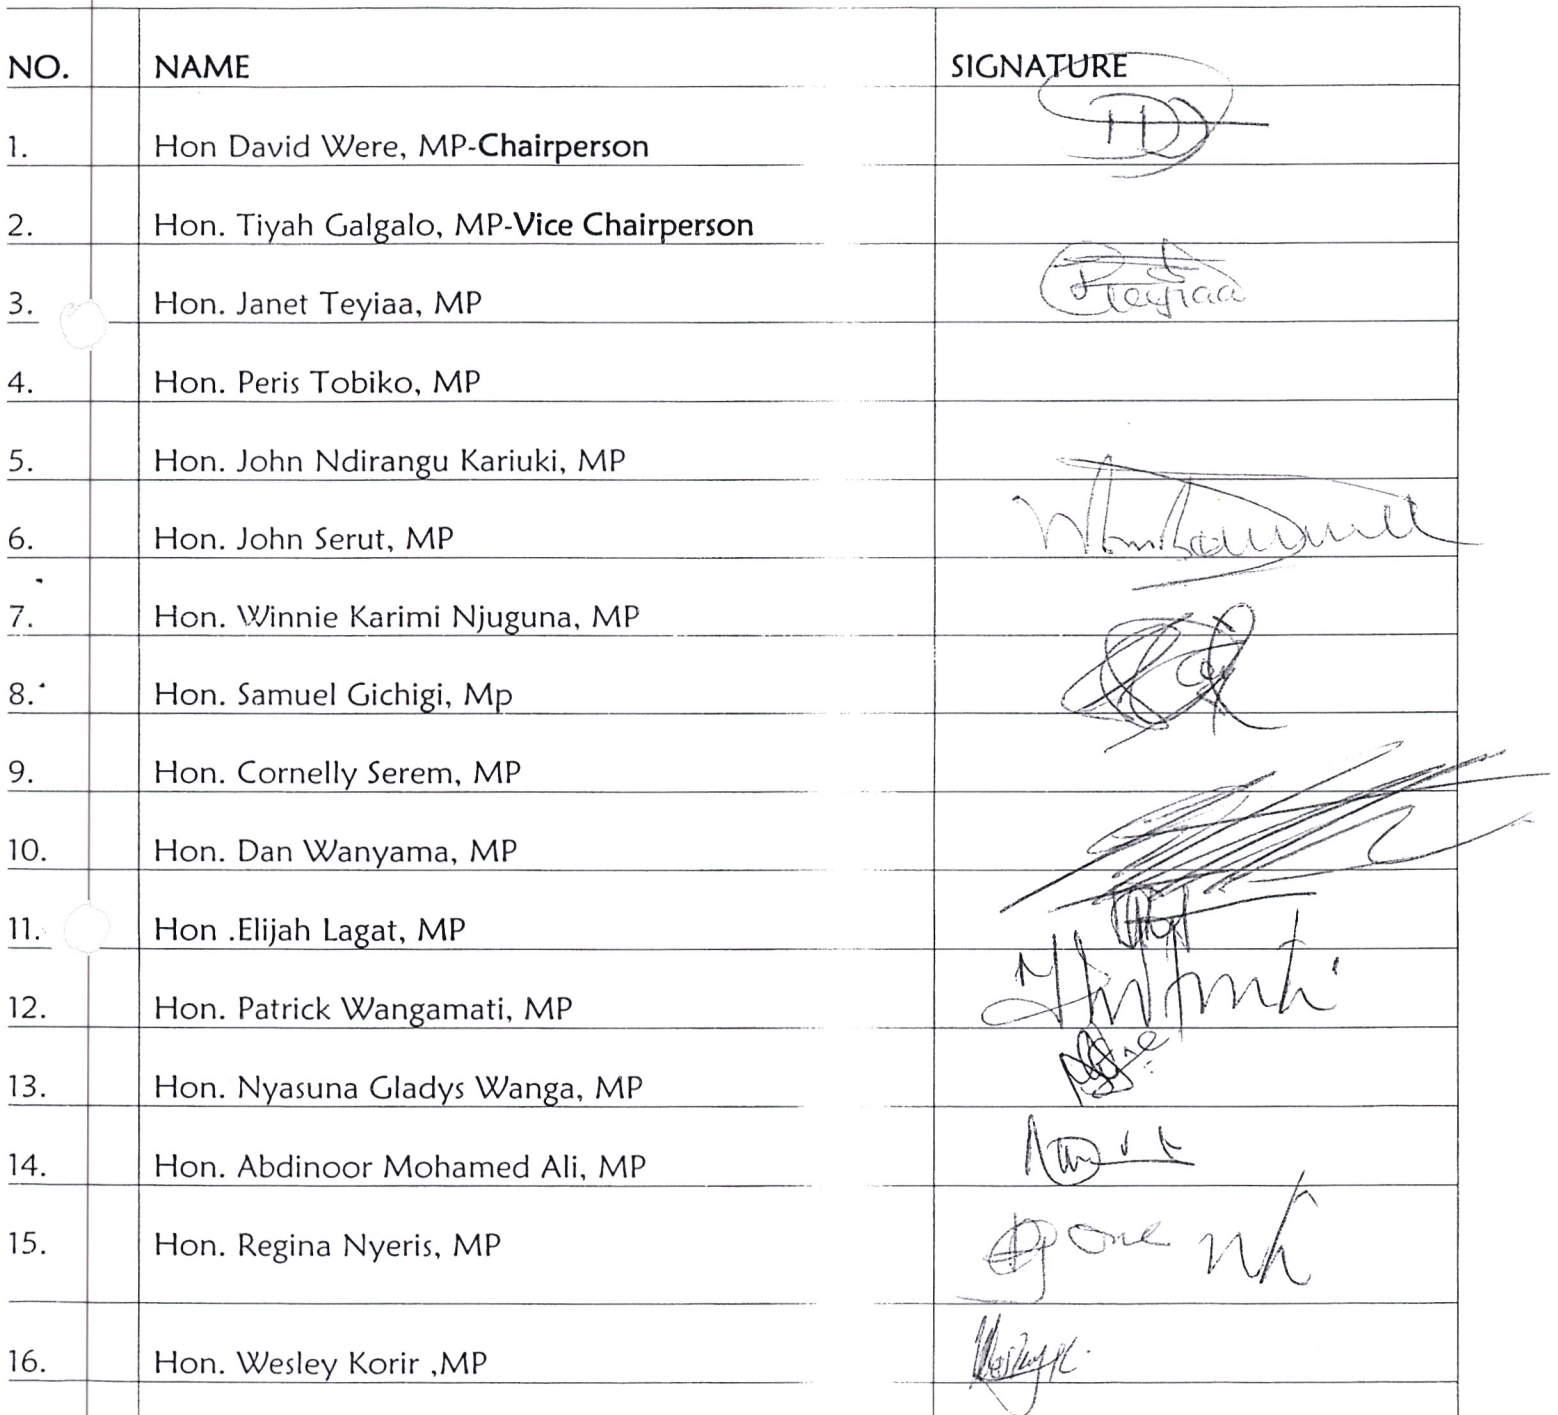 NO. NAME SIGNATURE
1. Hon David Were, MP-Chairperson
2. Hon. Tiyah Galgalo, MP-Vice Chairperson
3. Hon. Janet Teyiaa, MP Teyiaa
4. Hon. Peris Tobiko, MP
5. Hon. John Ndirangu Kariuki, MP
6. Hon. John Serut, MP
7. Hon. Winnie Karimi Njuguna, MP
8. Hon. Samuel Gichigi, Mp
9. Hon. Cornelly Serem, MP
10. Hon. Dan Wanyama, MP
11. Hon .Elijah Lagat, MP
12. Hon. Patrick Wangamati, MP
13. Hon. Nyasuna Gladys Wanga, MP
14. Hon. Abdinoor Mohamed Ali, MP
15. Hon. Regina Nyeris, MP
16. Hon. Wesley Korir ,MP